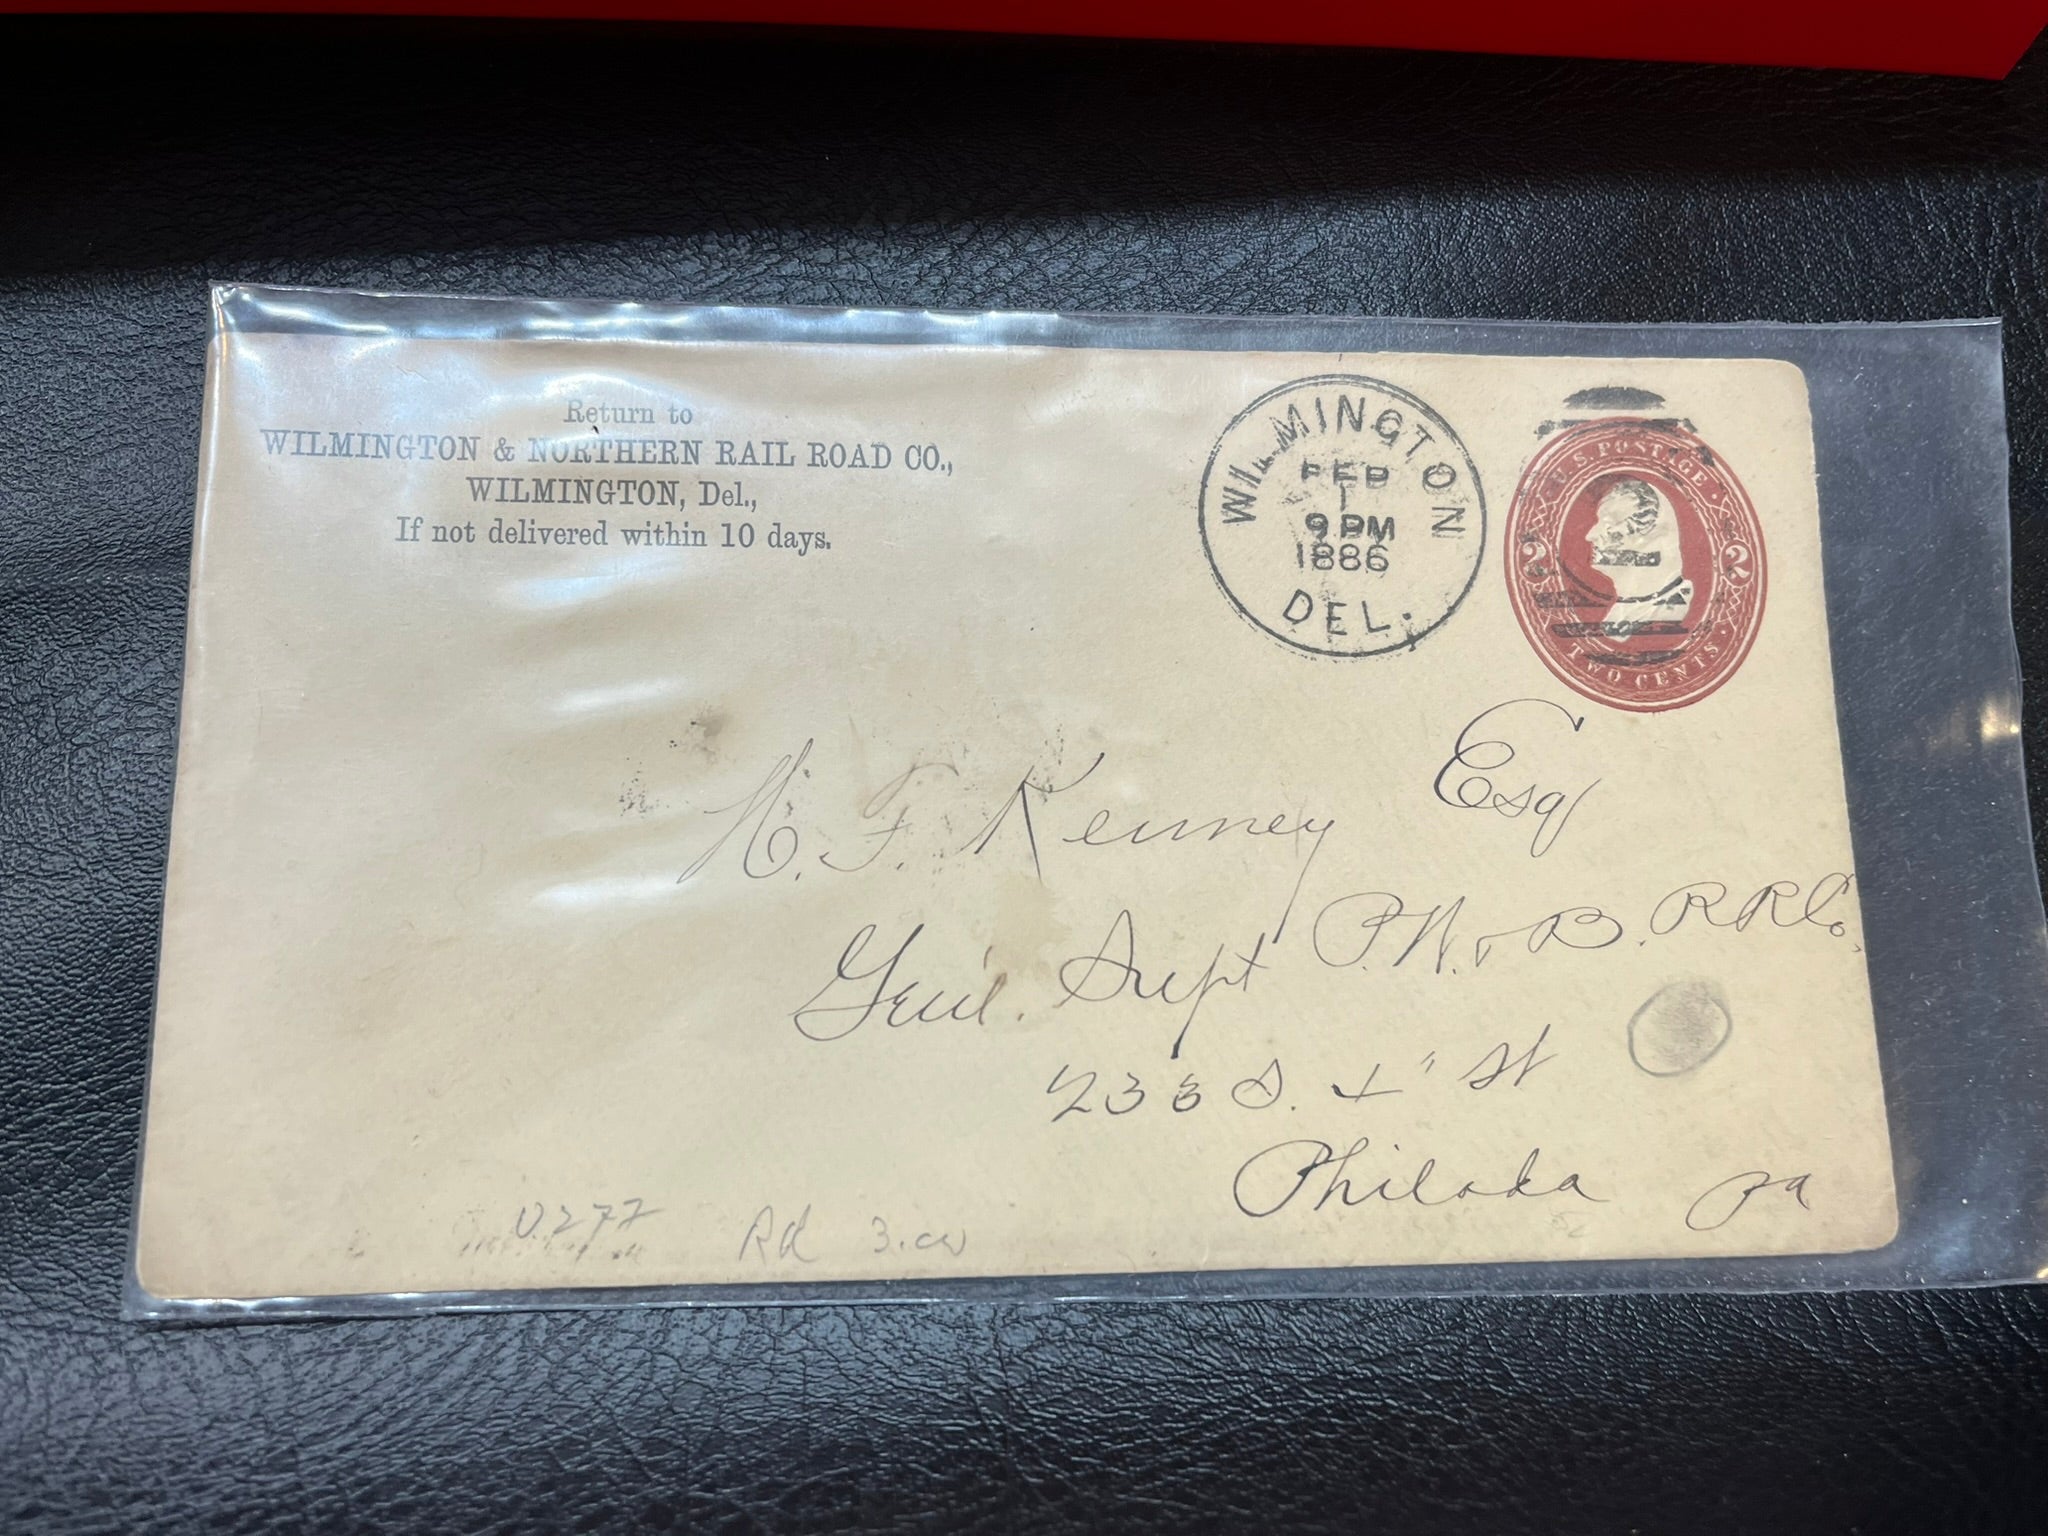 Return to
WILMINGTON & NORTHERN RAIL ROAD CO.,
WILMINGTON, Del.,
If not delivered within 10 days.
WILMINGTON
FEB
1
9 PM
1886
DEL.
U.S. POSTAGE
2 2
TWO CENTS
H. F. Kenney Esq
Gen'l. Supt P. W. & B. RR Co.
233 S. 4" St
Philada Pa
U277 Rd 3.00